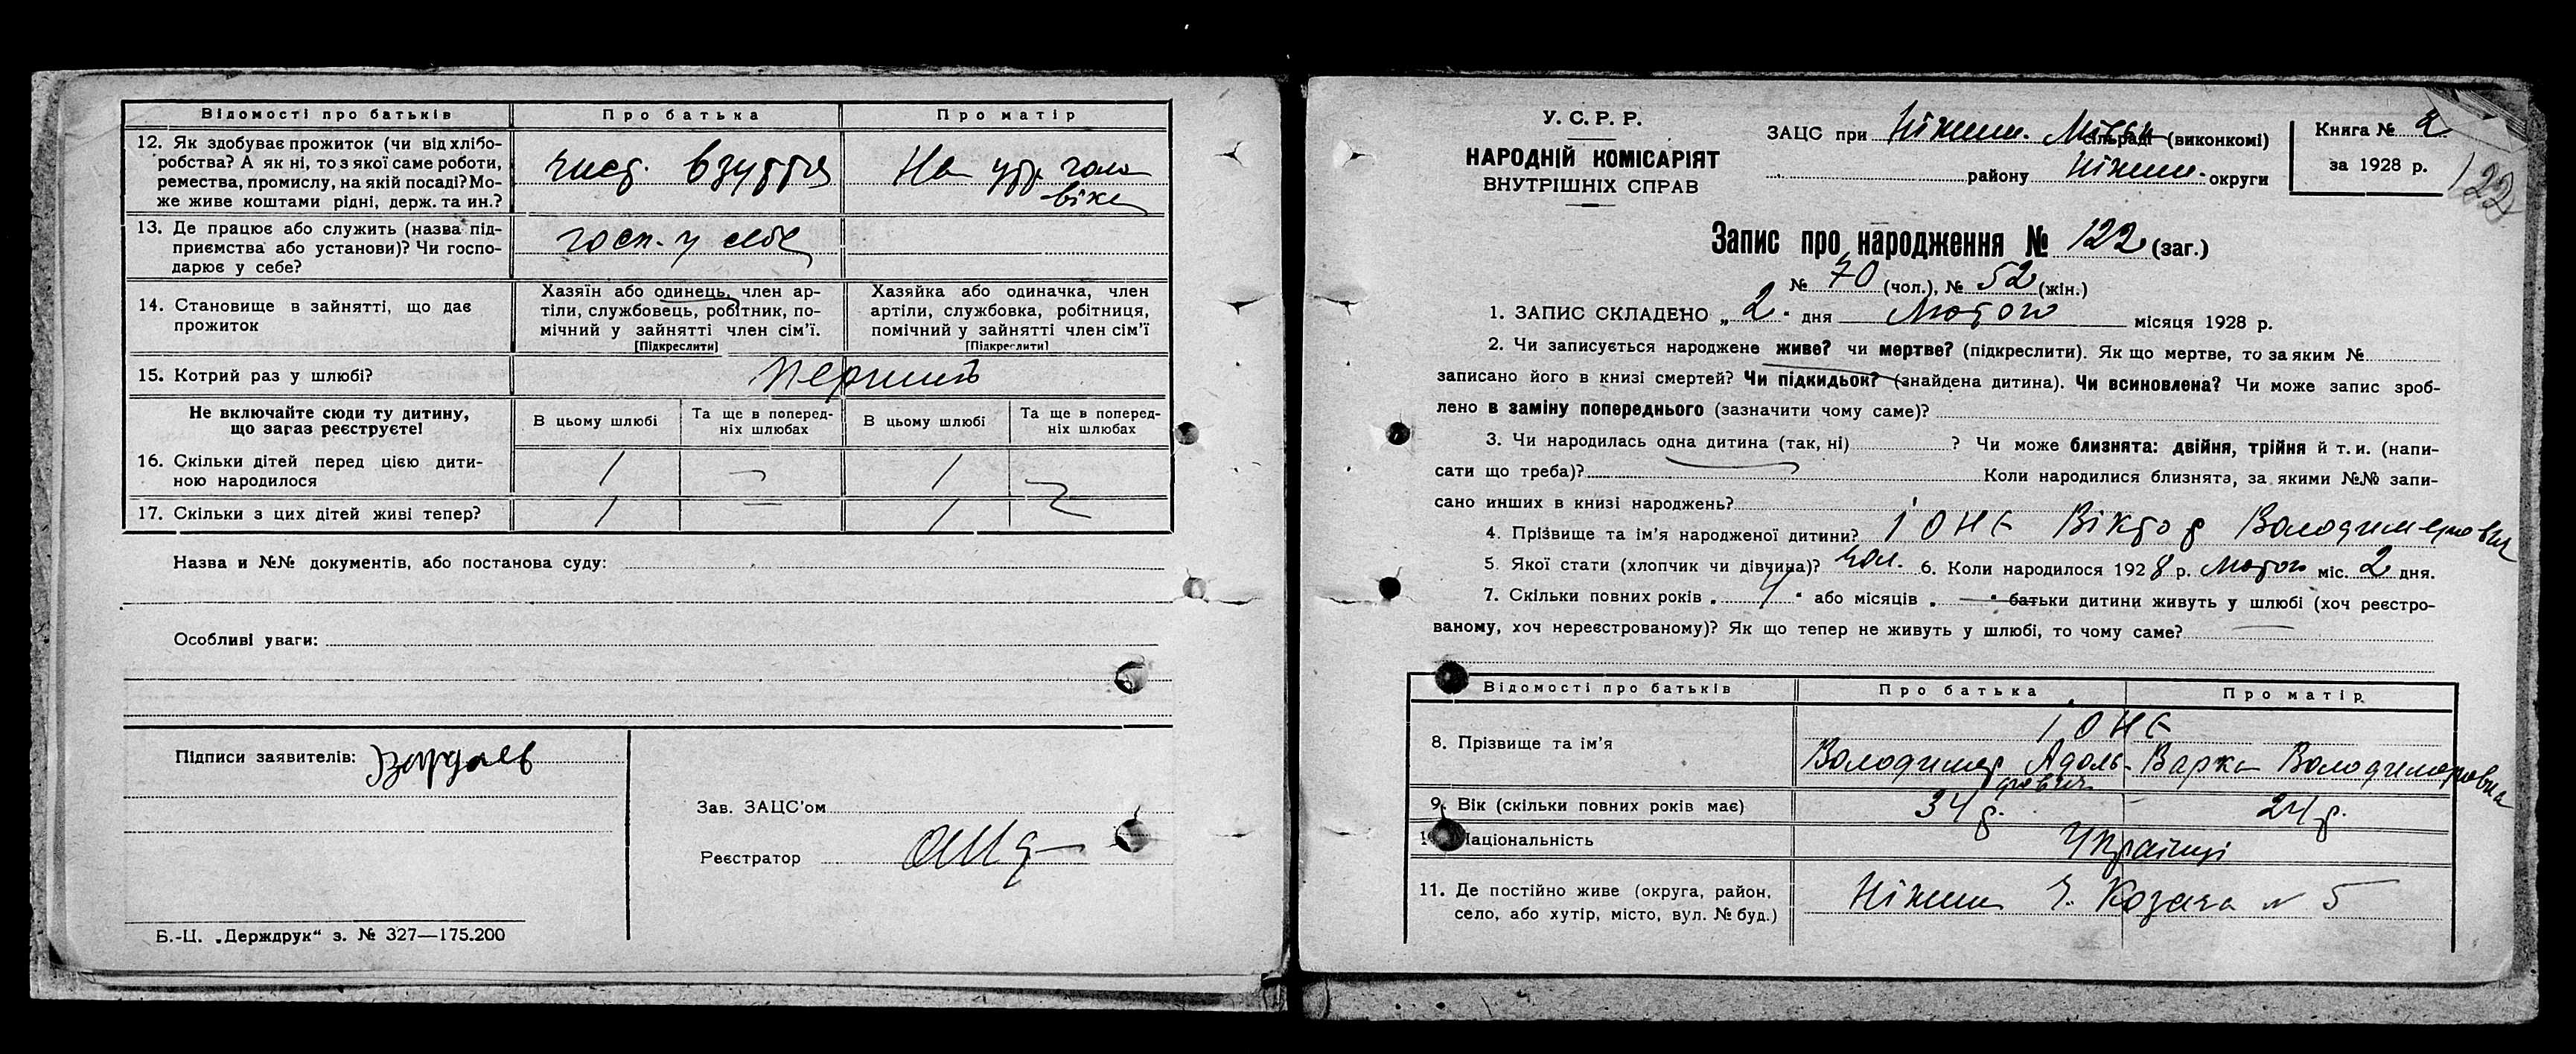 Відомості про батьків Про батька Про матір
12. Як здобуває прожиток (чи від хлібо-
робства? А як ні, то з якої саме роботи,
ремества, промислу, на якій посаді? Мо-
же живе коштами рідні, держ. та ин.?
чист. взуття
На утр. чоло
віка
13. Де працює або служить (назва під-
приємства або установи)? Чи госпо-
дарює у себе?
госп. у себе
14. Становище в зайнятті, що дає
прожиток
Хазяїн або одинець, член ар-
тіли, службовець, робітник, по-
мічний у зайнятті член сім’ї.
[Підкреслити]
Хазяйка або одиначка, член
артіли, службовка, робітниця,
помічний у зайнятті член сім’ї
[Підкреслити]
15. Котрий раз у шлюбі? перший
Не включайте сюди ту дитину,
що зараз реєструєте!
В цьому шлюбі
Та ще в поперед-
ніх шлюбах
В цьому шлюбі
Та ще в поперед-
ніх шлюбах
16. Скільки дітей перед цією дити-
ною народилося
1 — 1 —
17. Скільки з цих дітей живі тепер? 1 — 1 —
Назва и №№ документів, або постанова суду:
Особливі уваги:
Підписи заявителів:
Зав. ЗАЦС’ом
Реєстратор
Б.-Ц. „Держдрук“ з. № 327—175.200
У. С. Р. Р.
НАРОДНІЙ КОМІСАРІЯТ
ВНУТРІШНІХ СПРАВ
ЗАЦС при Ніжин. Міськ сільраді (виконкомі)
району Ніжин. округи
Книга № 2
за 1928 р.
122
Запис про народження № 122 (заг.)
№ 70 (чол.), № 52 (жін.)
1. ЗАПИС СКЛАДЕНО „ 2 “ дня Лютого місяця 1928 р.
2. Чи записується народжене живе? чи мертве? (підкреслити). Як що мертве, то за яким №
записано його в книзі смертей? Чи підкидьок? (знайдена дитина). Чи всиновлена? Чи може запис зроб-
лено в заміну попереднього (зазначити чому саме)?
3. Чи народилась одна дитина (так, ні) ? Чи може близнята: двійня, трійня й т. и. (напи-
сати що треба)? Коли народилися близнята, за якими №№ запи-
сано инших в книзі народжень?
4. Прізвище та ім’я народженої дитини? ІОНЕ Віктор Володимирович
5. Якої стати (хлопчик чи дівчина)? чол. 6. Коли народилося 1928 р. Лютого міс. 2 дня.
7. Скільки повних років „ 4 “ або місяців „ — “ батьки дитини живуть у шлюбі (хоч реєстро-
ваному, хоч нереєстрованому)? Як що тепер не живуть у шлюбі, то чому саме?
Відомості про батьків Про батька Про матір
8. Прізвище та ім’я
ІОНЕ
Володимир Адоль-
фович
Варка Володимировна
9. Вік (скільки повних років має) 34 р. 24 р.
10. Національність Українці
11. Де постійно живе (округа, район,
село, або хутір, місто, вул. № буд.)
Ніжин У. Козача № 5